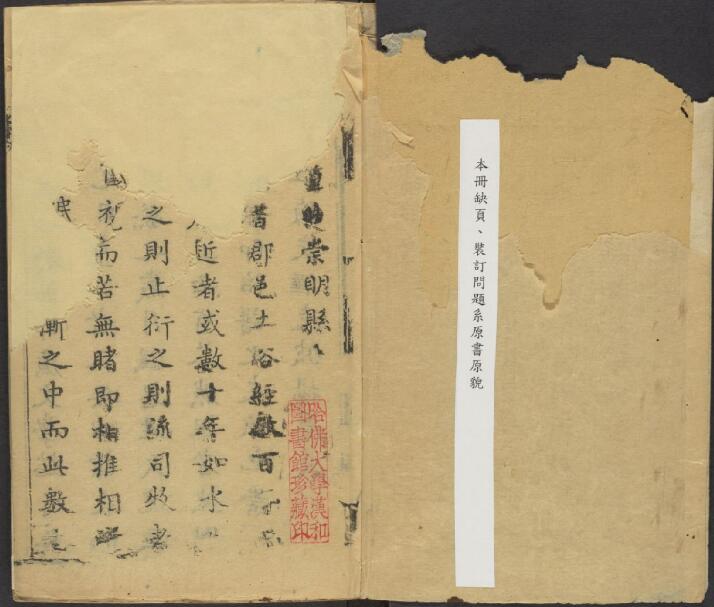 本冊缺頁、裝訂問題系原書原貌
崇明縣
郡邑土俗經數百
近者或數十年如水
之則止衍之則流司牧者
視而若無睹即相推相
民
漸之中而此數
哈佛大學漢和
圖書館珍藏印